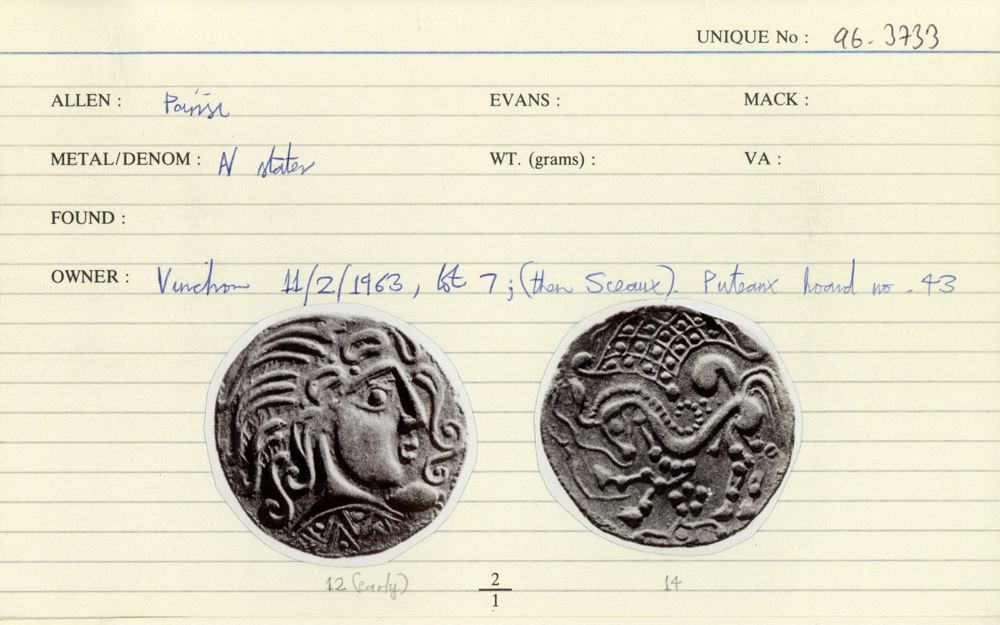 UNIQUE No : 96. 3733
ALLEN : Parisi EVANS : MACK :
METAL/DENOM : N stater WT. (grams) : VA :
FOUND :
OWNER : Vinchon 11/2/1963, lot 7; (then Sceaux). Puteaux hoard no. 43
12 (early) 2/1 14